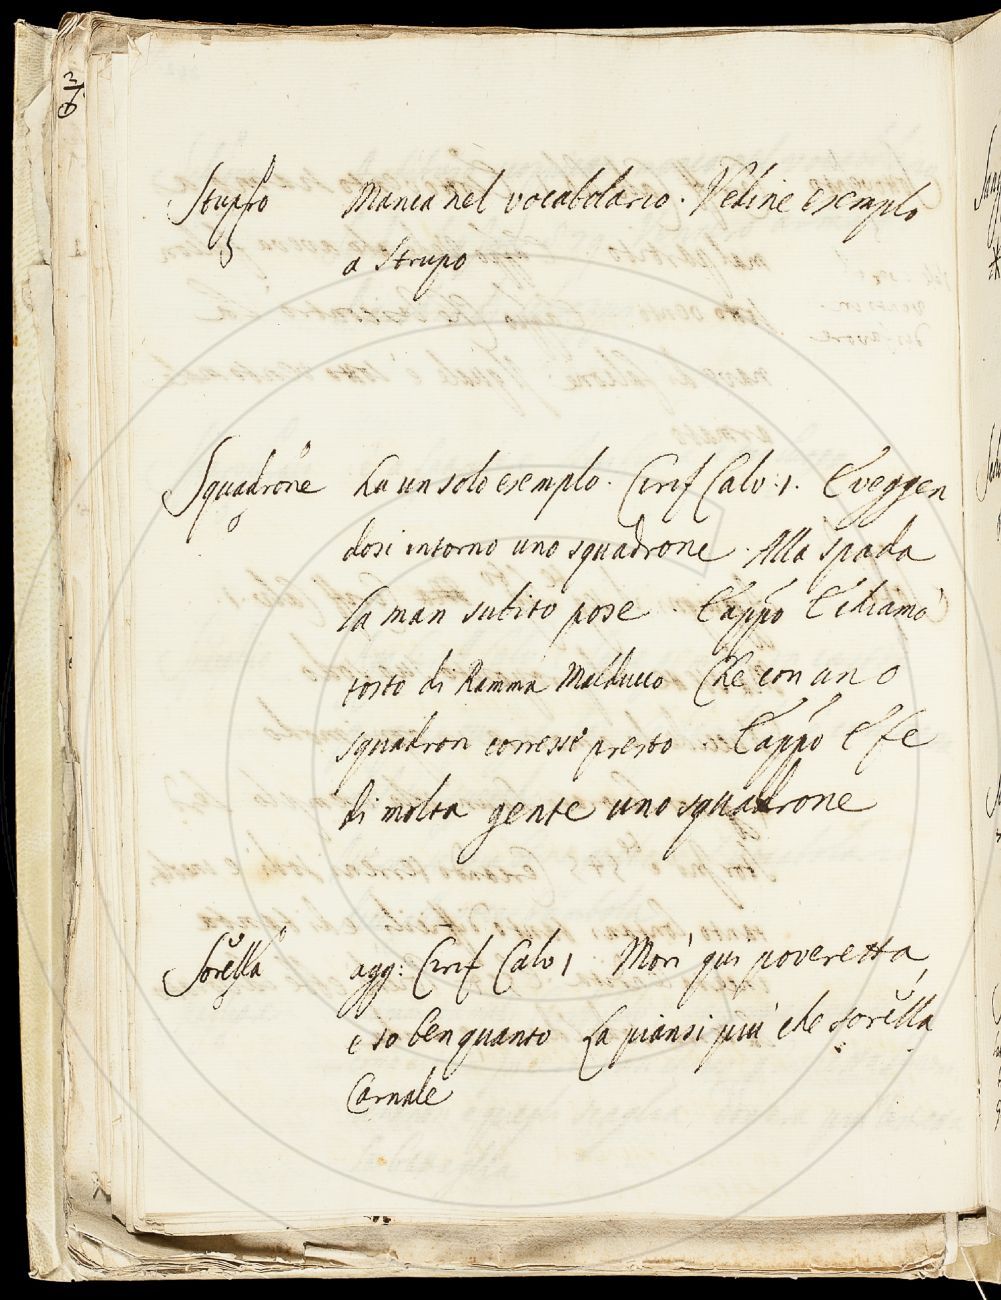 Stupro Manca nel vocabolario. Vedine esempio
a Strupo
Squadrone ha un solo esemplo. Cirif Calv: 1. E veggen
dosi intorno uno squadrone. Alla spada
la man subito pose. E appo E chiamò
tosto di Ramma Malducco Che con uno
squadron corresse presto. E appo E fe
di molta gente uno squadrone
Sorella agg: Cirif Calv 1 Morì qui poveretta,
e so ben quanto La piansi più che sorella
Carnale